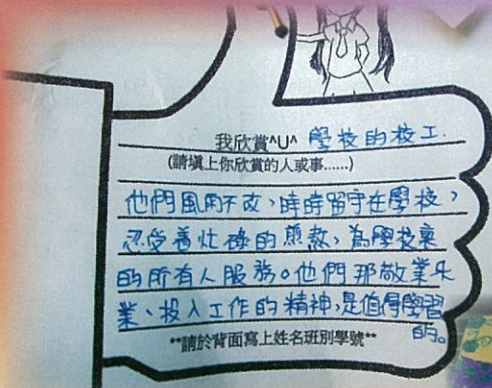 我欣賞^U^ 學校的校工.
(請填上你欣賞的人或事......)
他們風雨不改、時時留守在學校，
忍受着忙碌的煎熬、為學校裏
的所有人服務。他們那敬業乐
業、投入工作的精神，是值得學習
的。
**請於背面寫上姓名班別學號**